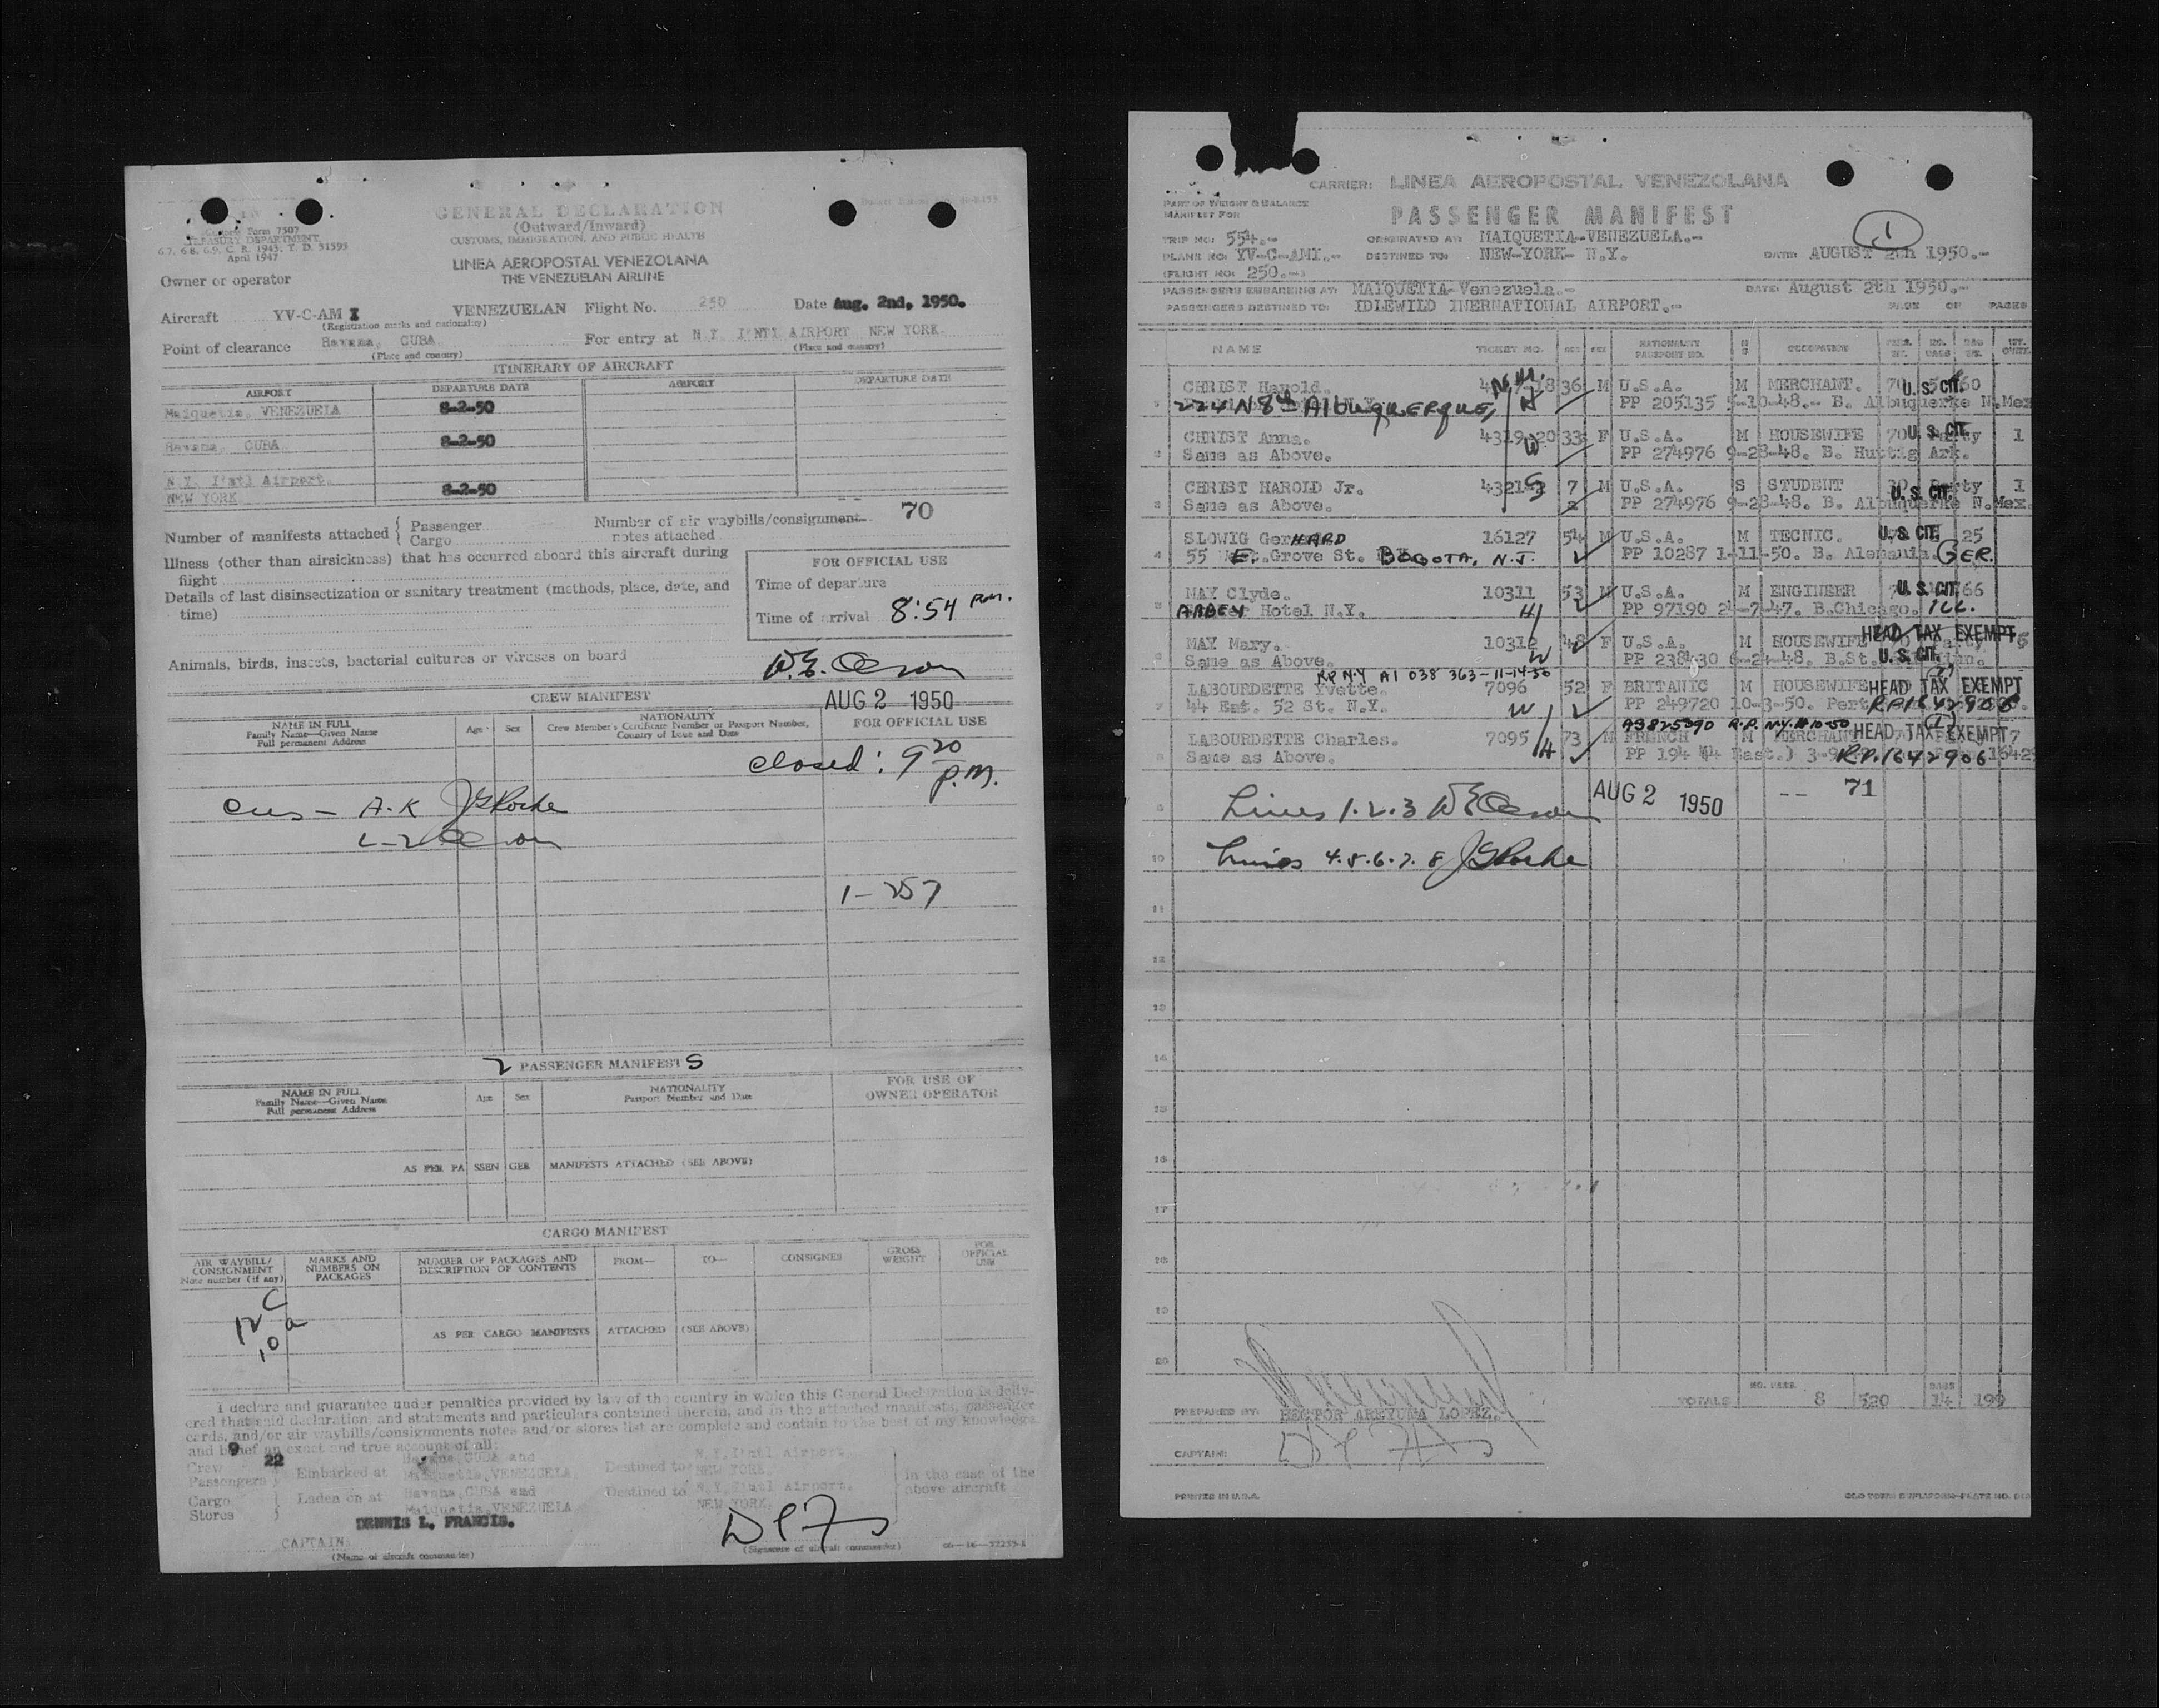 Customs Form 7507
TREASURY DEPARTMENT
6.7, 6.8, 6.9, C. R. 1943; T. D. 51593
April 1947
GENERAL DECLARATION
(Outward/Inward)
CUSTOMS, IMMIGRATION, AND PUBLIC HEALTH
LINEA AEROPOSTAL VENEZOLANA
THE VENEZUELAN AIRLINE
Owner or operator
Aircraft YV-C-AM I VENEZUELAN Flight No. 250 Date Aug. 2nd, 1950.
(Registration marks and nationality)
Point of clearance Havana, CUBA For entry at N.Y. I'NTL AIRPORT NEW YORK.
(Place and country) (Place and country)
ITINERARY OF AIRCRAFT
AIRPORT DEPARTURE DATE AIRPORT DEPARTURE DATE
Maiquetia, VENEZUELA 8-2-50
Havana, CUBA 8-2-50
N.Y. I'ntl Airport.
NEW YORK 8-2-50
70
Number of manifests attached { Passenger Cargo Number of air waybills/consignment notes attached
Illness (other than airsickness) that has occurred aboard this aircraft during
flight
Details of last disinsectization or sanitary treatment (methods, place, date, and
time)
FOR OFFICIAL USE
Time of departure
Time of arrival 8:54 P.M.
Animals, birds, insects, bacterial cultures or viruses on board
W.E. Olson
CREW MANIFEST
AUG 2 1950
NAME IN FULL
Family Name—Given Name
Full permanent Address
Age Sex
NATIONALITY
Crew Member's Certificate Number or Passport Number,
Country of Issue and Date
FOR OFFICIAL USE
closed: 9 20 P.M.
Cus - A-K J G Roche
L-Z Olson
1-257
2 PASSENGER MANIFESTS
NAME IN FULL
Family Name—Given Name
Full permanent Address
Age Sex
NATIONALITY
Passport Number and Date
FOR USE OF
OWNER OPERATOR
AS PER PASSENGER MANIFESTS ATTACHED (SEE ABOVE)
CARGO MANIFEST
AIR WAYBILL/
CONSIGNMENT
Note number (if any)
MARKS AND
NUMBERS ON
PACKAGES
NUMBER OF PACKAGES AND
DESCRIPTION OF CONTENTS
FROM— TO— CONSIGNEE
GROSS
WEIGHT
FOR
OFFICIAL
USE
12 C
10 a
AS PER CARGO MANIFESTS ATTACHED (SEE ABOVE)
I declare and guarantee under penalties provided by law of the country in which this General Declaration is deliv-
ered that said declaration, and statements and particulars contained therein, and in the attached manifests, passenger
cards, and/or air waybills/consignments notes and/or stores list are complete and contain to the best of my knowledge
and belief an exact and true account of all:
Crew 9
Passengers 22 } Embarked at Havana, CUBA and Maiquetia, VENEZUELA Destined to N.Y. I'ntl Airport. NEW YORK.
Cargo
Stores } Laden on at Havana, CUBA and Maiquetia, VENEZUELA Destined to N.Y. I'ntl Airport. NEW YORK.
In the case of the
above aircraft
DENNIS L. FRANCIS.
CAPTAIN
(Name of aircraft commander) (Signature of aircraft commander)
PART OF WEIGHT & BALANCE
MANIFEST FOR
CARRIER: LINEA AEROPOSTAL VENEZOLANA
PASSENGER MANIFEST
1
TRIP NO: 554.- ORIGINATED AT: MAIQUETIA-VENEZUELA.-
PLANE NO: YV-C-AMI.- DESTINED TO: NEW-YORK- N.Y. DATE: AUGUST 2th 1950.-
(FLIGHT NO: 250.-)
PASSENGERS EMBARKING AT: MAIQUETIA-Venezuela.- DATE: August 2th 1950.-
PASSENGERS DESTINED TO: IDLEWILD INERNATIONAL AIRPORT.- PAGE OF PAGES
NAME TICKET NO. AGE SEX NATIONALITY PASSPORT NO. M S OCCUPATION PASS. WT. NO. BAGS BAG WT.
CHRIST Harold. 36 M U.S.A. M MERCHANT. 70 U.S. CIT. 60
224 N 8th Albuquerque, N.M. H PP 205135 9-10-48.- B. Albuquerke N.Mex
CHRIST Anna. 4319-20 33 F U.S.A. M HOUSEWIFE 70 U.S. CIT. 1
Same as Above. W PP 274976 9-28-48. B. Huttig Ark.
CHRIST HAROLD Jr. 7 M U.S.A. S STUDENT U.S. CIT. 1
Same as Above. S PP 274976 9-28-48. B. Albuquerke N.Mex.
SLOWIG GerHARD 16127 54 M U.S.A. M TECNIC. U.S. CIT. 25
55 E. Grove St. BOGOTA, N.J. PP 10287 1-11-50. B. Alemania. GER.
MAY Clyde. 10311 53 M U.S.A. M ENGINEER U.S. CIT. 66
ABBEY Hotel N.Y. H PP 97190 2-7-47. B.Chicago. ILL.
MAY Mary. 10312 48 F U.S.A. M HOUSEWIFE HEAD TAX EXEMPT
Same as Above. W PP 238430 6-24-48. B.St. U.S. CIT.
RP N.Y A1 038 363-11-14-50
LABOURDETTE Yvette. 7096 52 F BRITANIC M HOUSEWIFE HEAD TAX EXEMPT
44 Est. 52 St. N.Y. W PP 249720 10-3-50. RP1642905
LABOURDETTE Charles. 7095 73 M FRENCH M MERCHANT HEAD TAX EXEMPT
Same as Above. H PP 194 RP.1642906
AUG 2 1950 -- 71
Lines 1.2.3 W E Olson
Lines 4.5.6.7.8 J G Roche
TOTALS NO. PASS. 8 520 BAGS 14 199
PREPARED BY: HECTOR AREYUMA LOPEZ.
CAPTAIN:
PRINTED IN U.S.A.